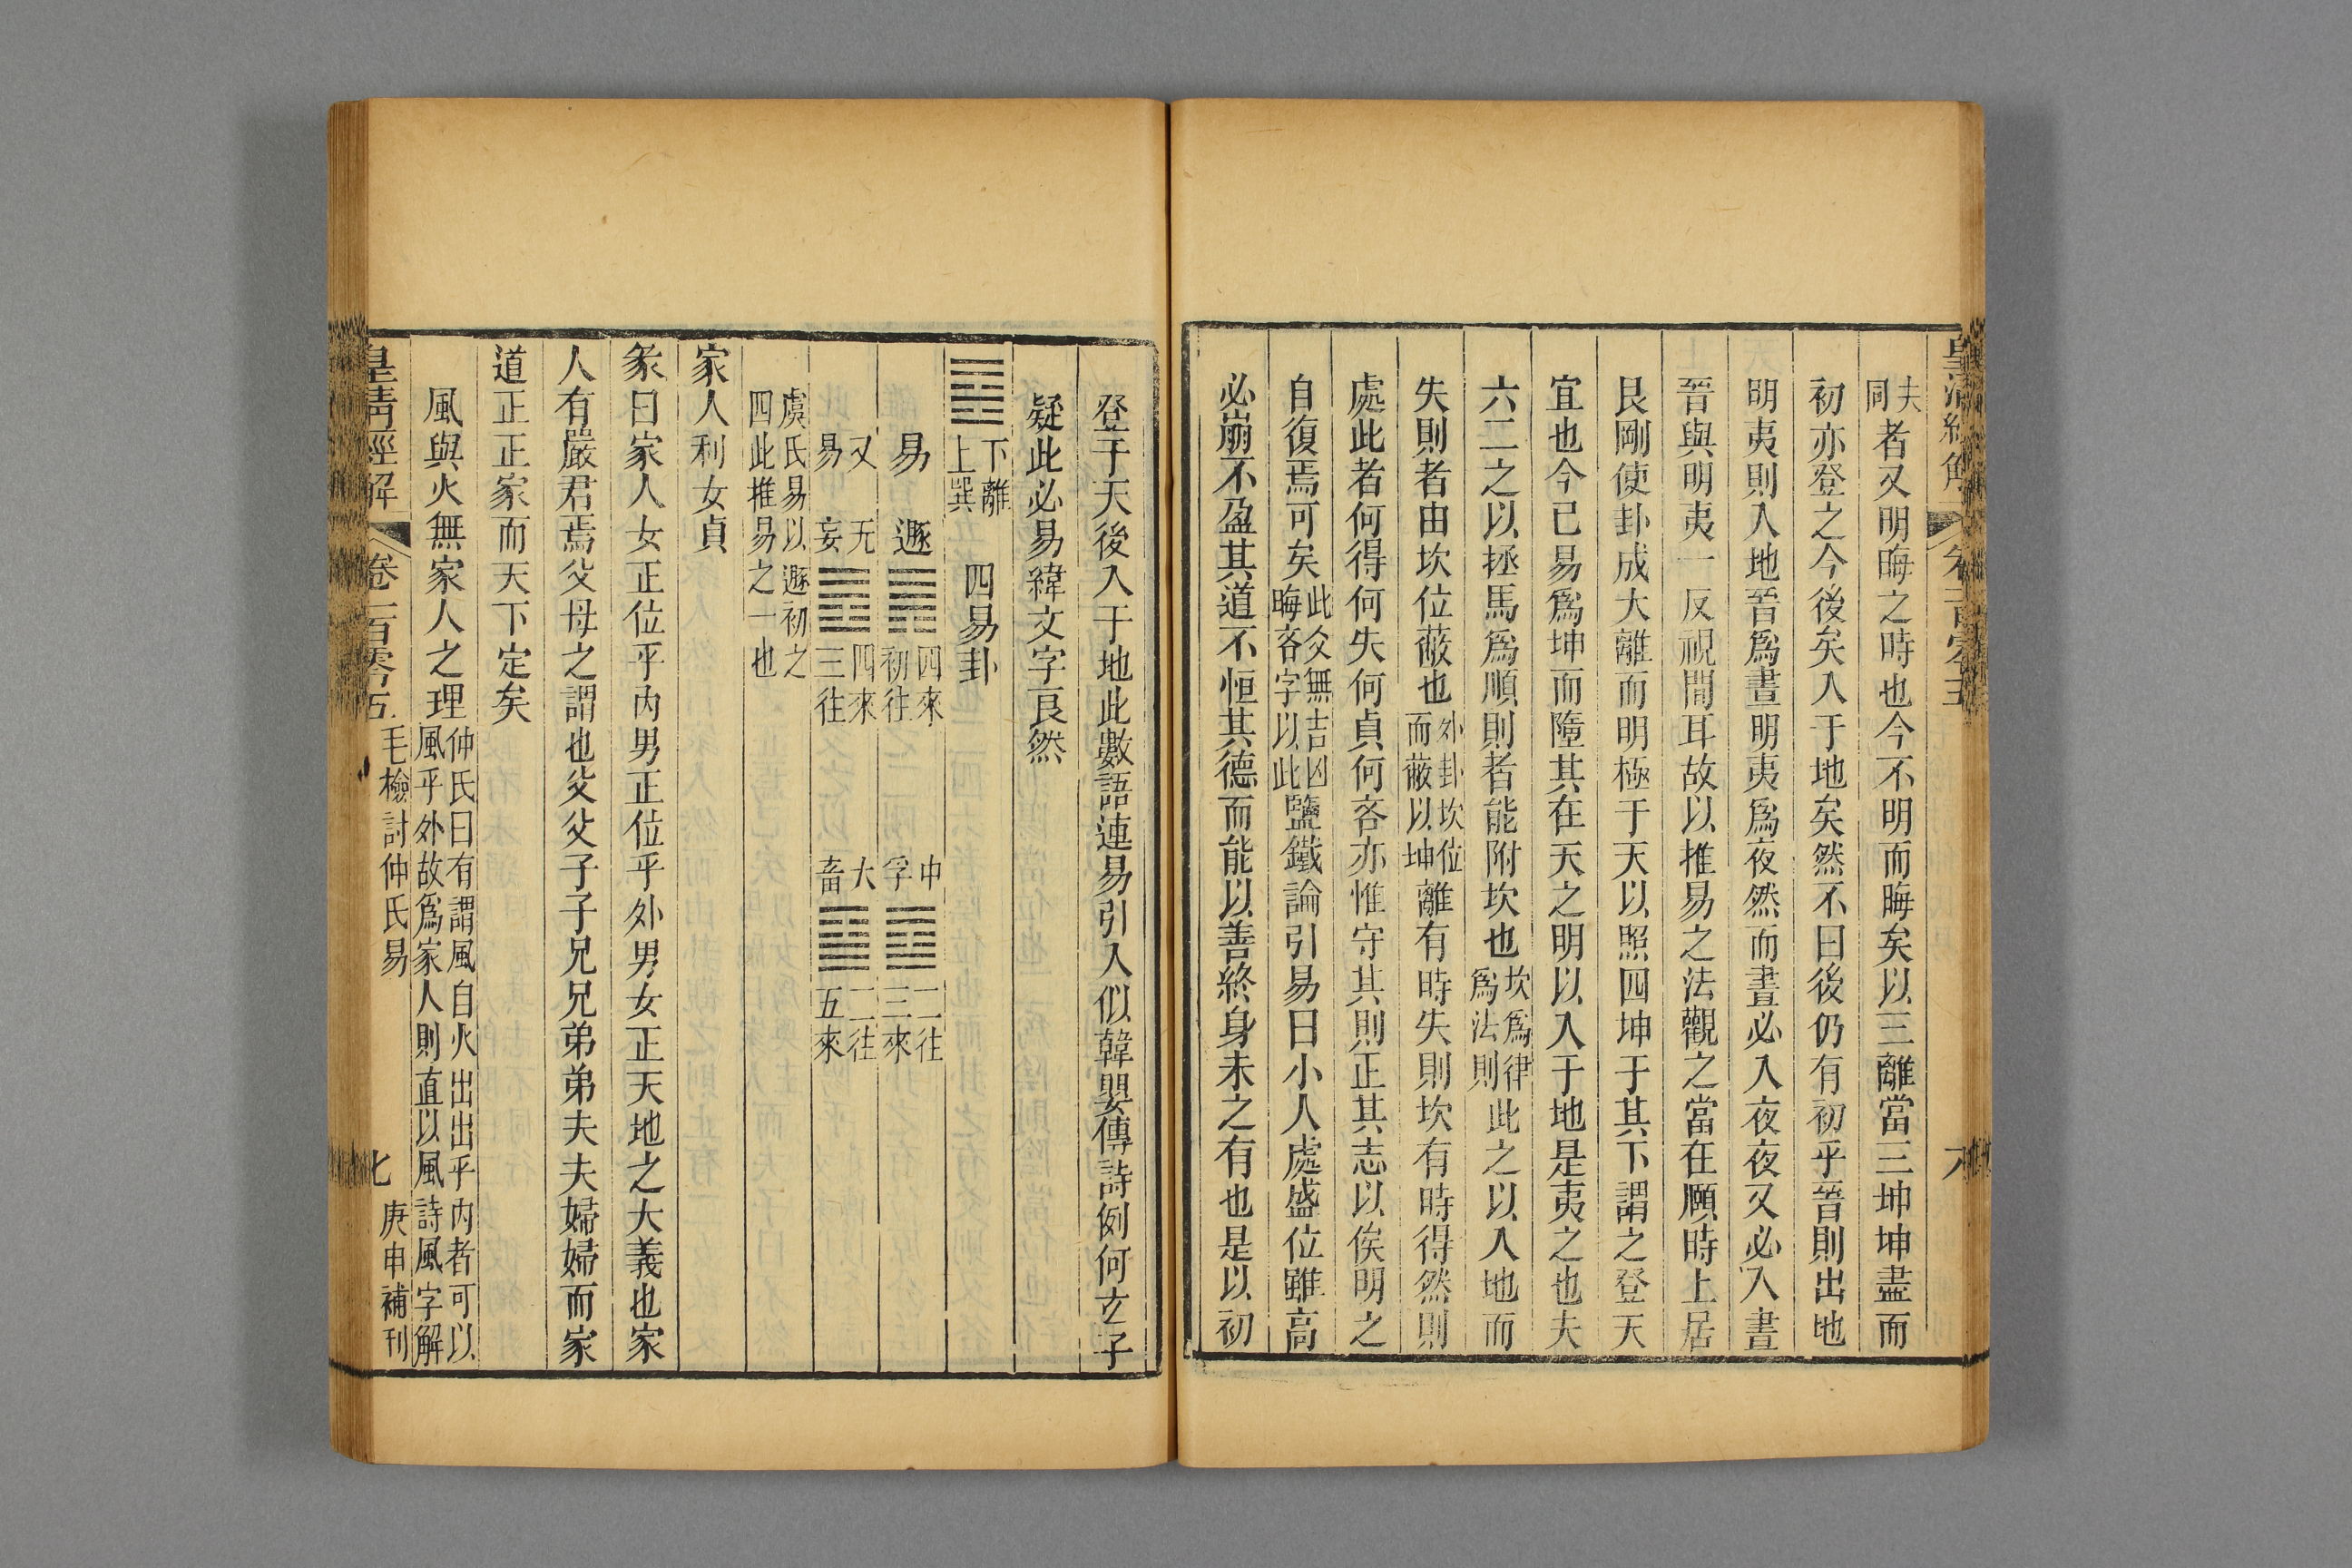 皇清經解
卷一百零五
六
夫同者又明晦之時也今不明而晦矣以三離當三坤坤盡而
初亦登之今後矣入于地矣然不曰後仍有初乎晉則出地
明夷則入地晉爲晝明夷爲夜然而晝必入夜夜又必入晝
晉與明夷一反視間耳故以推易之法觀之當在願時上居
艮剛使卦成大離而明極于天以照四坤于其下謂之登天
宜也今已易爲坤而墮其在天之明以入于地是夷之也夫
六二之以拯馬爲順則者能附坎也坎爲律爲法則此之以入地而
失則者由坎位蔽也外卦坎位而蔽以坤離有時失則坎有時得然則
處此者何得何失何貞何吝亦惟守其則正其志以俟明之
自復焉可矣此爻無吉凶晦吝字以此鹽鐵論引易曰小人處盛位雖高
必崩不盈其道不恒其德而能以善終身未之有也是以初
登于天後入于地此數語連易引入似韓嬰傳詩例何玄子
疑此必易緯文字良然
䷤下離上巽 四易卦
易 遯䷠四來初往 中孚䷼二往三來
又易 无妄䷘四來三往 大畜䷙二往五來
虞氏易以遯初之四此推易之一也
家人利女貞
彖曰家人女正位乎內男正位乎外男女正天地之大義也家
人有嚴君焉父母之謂也父父子子兄兄弟弟夫夫婦婦而家
道正正家而天下定矣
風與火無家人之理仲氏曰有謂風自火出出乎內者可以風乎外故爲家人則直以風詩風字解
皇清經解
卷一百零五
毛檢討仲氏易
七
庚申補刊